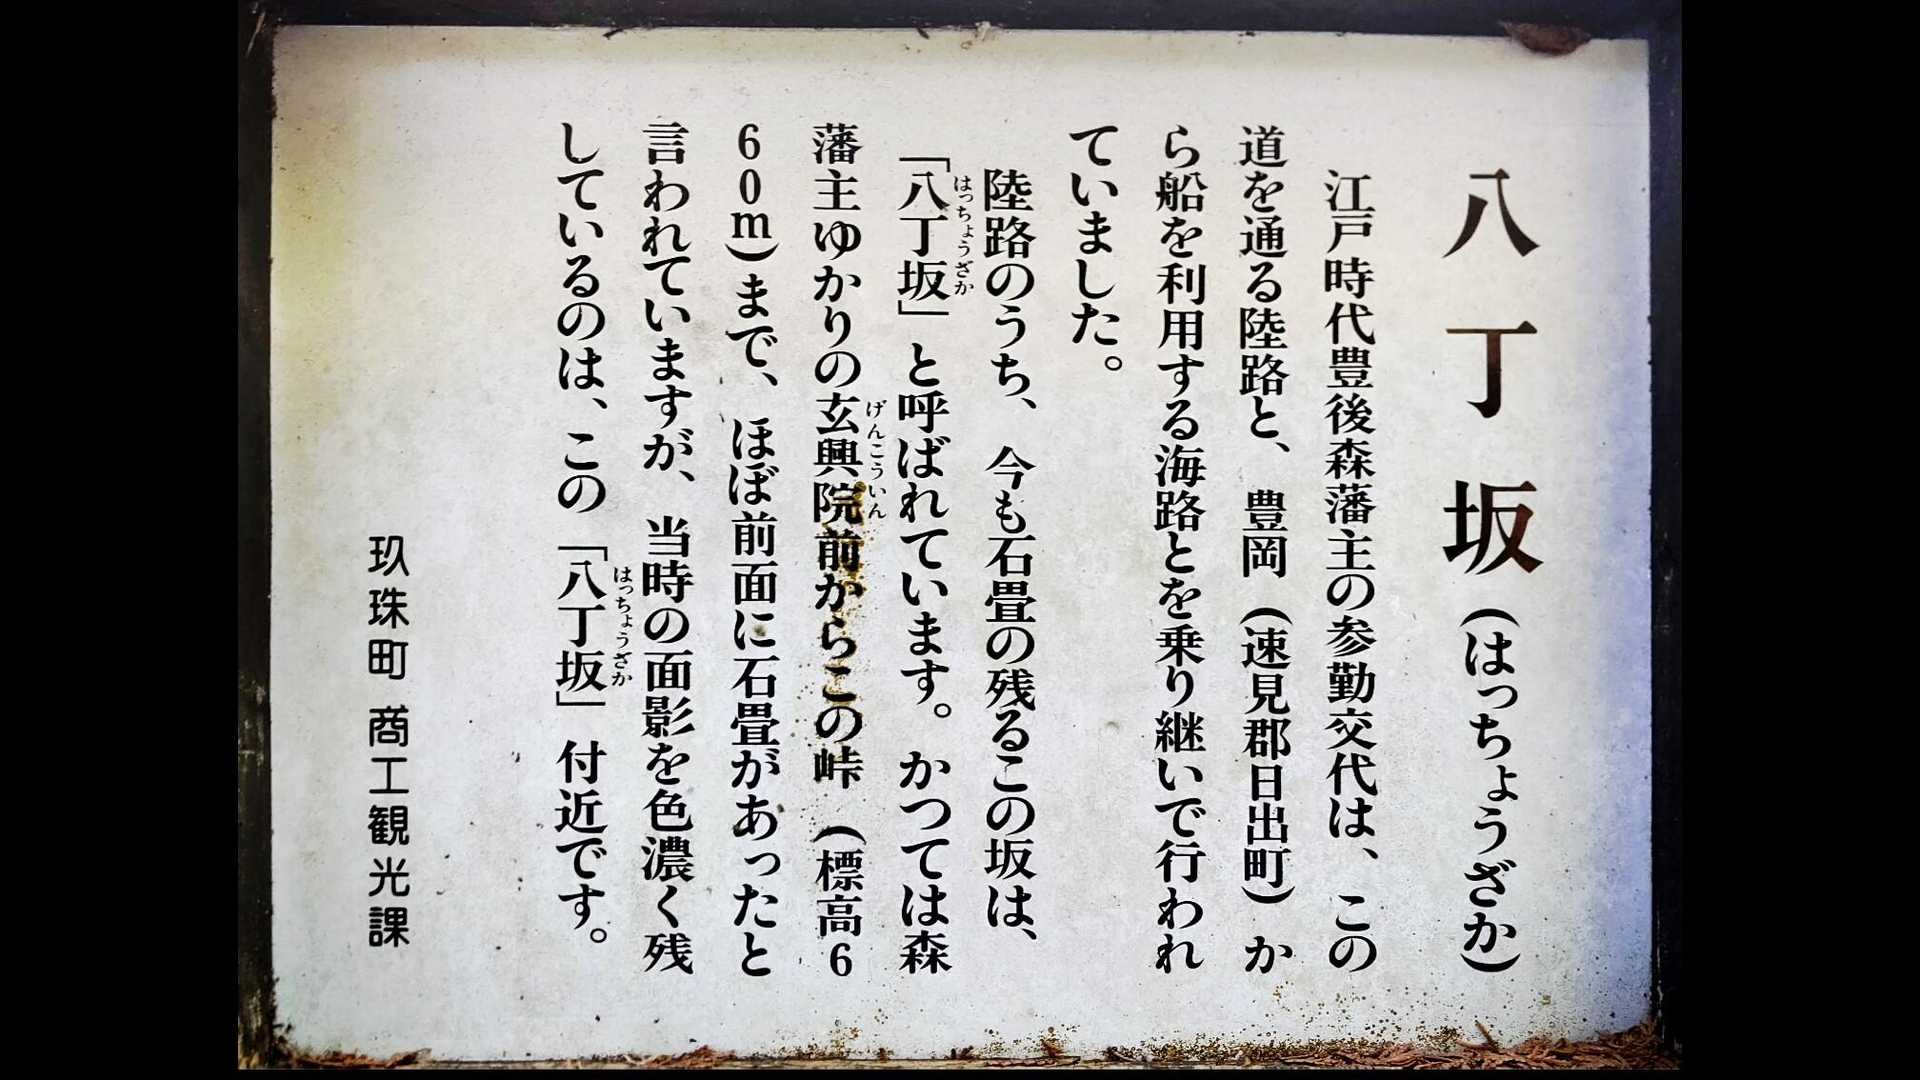 八丁坂(はっちょうざか)
江戸時代豊後森藩主の参勤交代は、この
道を通る陸路と、豊岡(速見郡日出町)か
ら船を利用する海路とを乗り継いで行われ
ていました。
陸路のうち、今も石畳の残るこの坂は、
はっちょうざか
「八丁坂」と呼ばれています。かつては森
げんこういん
藩主ゆかりの玄興院前からこの峠(標高6
60m)まで、ほぼ前面に石畳があったと
言われていますが、当時の面影を色濃く残
はっちょうざか
しているのは、この「八丁坂」付近です。
玖珠町 商工観光課